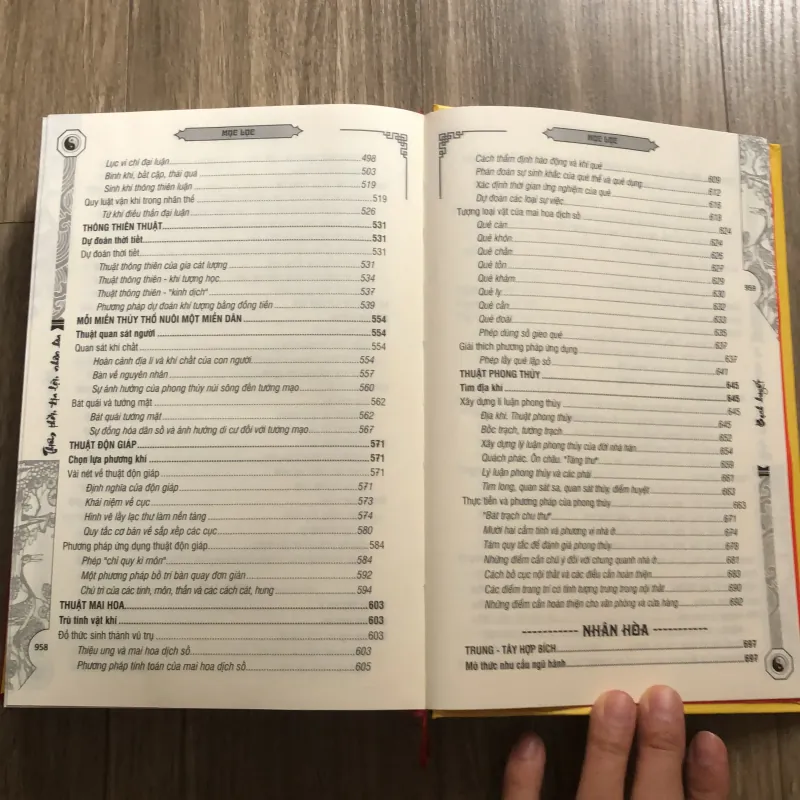 MỤC LỤC
Lục vi chỉ đại luận 498
Bình khí, bất cập, thái quá 503
Sinh khí thông thiên luận 519
Quy luật vận khí trong nhân thể 519
Tứ khí điều thần đại luận 526
THÔNG THIÊN THUẬT 531
Dự đoán thời tiết 531
Dự đoán thời tiết 531
Thuật thông thiên của gia cát lượng 531
Thuật thông thiên - khí tượng học 534
Thuật thông thiên - "kinh dịch" 537
Phương pháp dự đoán khí tượng bằng đồng tiền 539
MỖI MIỀN THỦY THỔ NUÔI MỘT MIỀN DÂN 554
Thuật quan sát người 554
Quan sát khí chất 554
Hoàn cảnh địa lí và khí chất của con người 554
Bàn về nguyên nhân 557
Sự ảnh hưởng của phong thủy núi sông đến tướng mạo 560
Bát quái và tướng mặt 562
Bát quái tướng mặt 562
Sự đồng hóa dân số và ảnh hưởng di cư đối với tướng mạo 567
THUẬT ĐỘN GIÁP 571
Chọn lựa phương khí 571
Vài nét về thuật độn giáp 571
Định nghĩa của độn giáp 571
Khái niệm về cục 573
Hình vẽ lấy lạc thư làm nền tảng 574
Quy tắc cơ bản về sắp xếp các cục 580
Phương pháp ứng dụng thuật độn giáp 584
Phép "chỉ quy kì môn" 584
Một phương pháp bố trí bàn quay đơn giản 592
Chủ trì của các tinh, môn, thần và các cách cát, hung 594
THUẬT MAI HOA 603
Trù tính vật khí 603
Đồ thức sinh thành vũ trụ 603
Thiệu ung và mai hoa dịch số 603
Phương pháp tính toán của mai hoa dịch số 605
958
MỤC LỤC
Cách thẩm định hào động và khí quẻ 609
Phán đoán sự sinh khắc của quẻ thể và quẻ dụng 612
Xác định thời gian ứng nghiệm của quẻ 616
Dự đoán các loại sự việc 618
Tượng loại vật của mai hoa dịch số 624
Quẻ càn 624
Quẻ khôn 626
Quẻ chấn 627
Quẻ tốn 629
Quẻ khảm 630
Quẻ ly 632
Quẻ cấn 633
Quẻ đoài 635
Phép dùng số gieo quẻ 637
Giải thích phương pháp ứng dụng 637
Phép lấy quẻ lập số 641
THUẬT PHONG THỦY 645
Tìm địa khí 645
Xây dựng lí luận phong thủy 645
Địa khí. Thuật phong thủy 645
Bốc trạch, tướng trạch 652
Xây dựng lý luận phong thủy của đời nhà hán 654
Quách phác. Ôn châu. "Táng thư" 659
Lý luận phong thủy và các phái 661
Tìm long, quan sát sa, quan sát thủy, điểm huyệt 663
Thực tiễn và phương pháp của phong thủy 663
"Bát trạch chu thư" 671
Mười hai cấm tinh và phương vị nhà ở 674
Tám quy tắc để đánh giá phong thủy 678
Những điểm cần chú ý đối với chung quanh nhà ở 681
Cách bố cục nội thất và các điều cần hoàn thiện 683
Các điểm trang trí có tính tượng trưng trong nội thất 690
Những điểm cần hoàn thiện cho văn phòng và cửa hàng 692
NHÂN HÒA
TRUNG - TÂY HỢP BÍCH 697
Mô thức nhu cầu ngũ hành 697
959